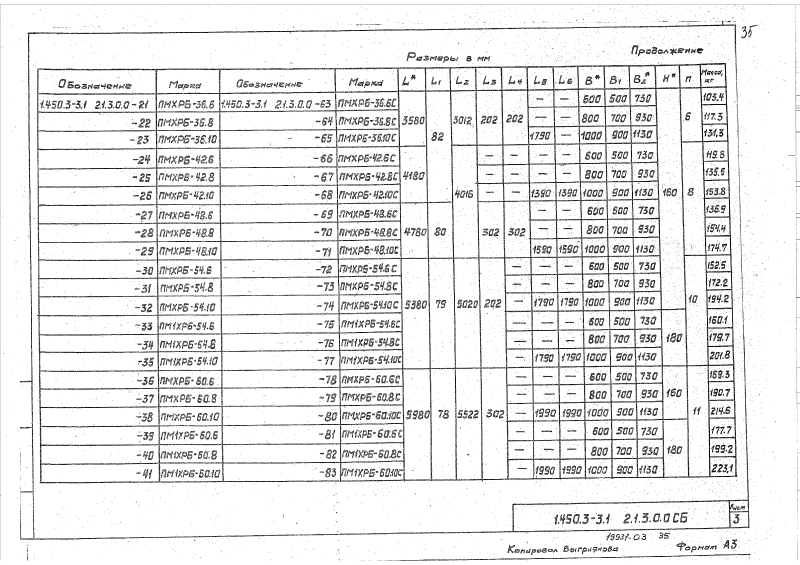 35
Размеры в мм
Продолжение
Обозначение Марка Обозначение Марка L* L1 L2 L3 L4 L5 L6 B* B1 B2* H* n Масса, кг
1.450.3-3.1 2.1.3.0.0-21 ПМХРБ-36.6 1.450.3-3.1 2.1.3.0.0-63 ПМХРБ-36.6С 3580 82 3012 202 202 — — 600 500 730 160 6 103.4
-22 ПМХРБ-36.8 -64 ПМХРБ-36.8С — — 800 700 930 117.3
-23 ПМХРБ-36.10 -65 ПМХРБ-36.10С 1790 — 1000 900 1130 131,3
-24 ПМХРБ-42.6 -66 ПМХРБ-42.6С 4180 4016 — — — — 600 500 730 8 119.6
-25 ПМХРБ-42.8 -67 ПМХРБ-42.8С — — — — 800 700 930 135.5
-26 ПМХРБ-42.10 -68 ПМХРБ-42.10С — — 1390 1390 1000 900 1130 153.8
-27 ПМХРБ-48.6 -69 ПМХРБ-48.6С 4780 80 302 302 — — 600 500 730 136.9
-28 ПМХРБ-48.8 -70 ПМХРБ-48.8С — — 800 700 930 154.4
-29 ПМХРБ-48.10 -71 ПМХРБ-48.10С 1590 1590 1000 900 1130 174.7
-30 ПМХРБ-54.6 -72 ПМХРБ-54.6С 5380 79 5020 202 — — — 600 500 730 10 152.5
-31 ПМХРБ-54.8 -73 ПМХРБ-54.8С — — — 800 700 930 172.2
-32 ПМХРБ-54.10 -74 ПМХРБ-54.10С — 1790 1790 1000 900 1130 194.2
-33 ПМ1ХРБ-54.6 -75 ПМ1ХРБ-54.6С — — — 600 500 730 180 160.1
-34 ПМ1ХРБ-54.8 -76 ПМ1ХРБ-54.8С — — — 800 700 930 179.7
-35 ПМ1ХРБ-54.10 -77 ПМ1ХРБ-54.10С — 1790 1790 1000 900 1130 201.8
-36 ПМХРБ-60.6 -78 ПМХРБ-60.6С 5980 78 5522 302 — — — 600 500 730 160 11 169.3
-37 ПМХРБ-60.8 -79 ПМХРБ-60.8С — — — 800 700 930 190.7
-38 ПМХРБ-60.10 -80 ПМХРБ-60.10С — 1990 1990 1000 900 1130 214.6
-39 ПМ1ХРБ-60.6 -81 ПМ1ХРБ-60.6С — — — 600 500 730 180 177.7
-40 ПМ1ХРБ-60.8 -82 ПМ1ХРБ-60.8С — — — 800 700 930 199.2
-41 ПМ1ХРБ-60.10 -83 ПМ1ХРБ-60.10С — 1990 1990 1000 900 1130 223,1
1.450.3-3.1 2.1.3.0.0 СБ
Лист
3
19931-03 35
Копировал Выгриянова Формат А3